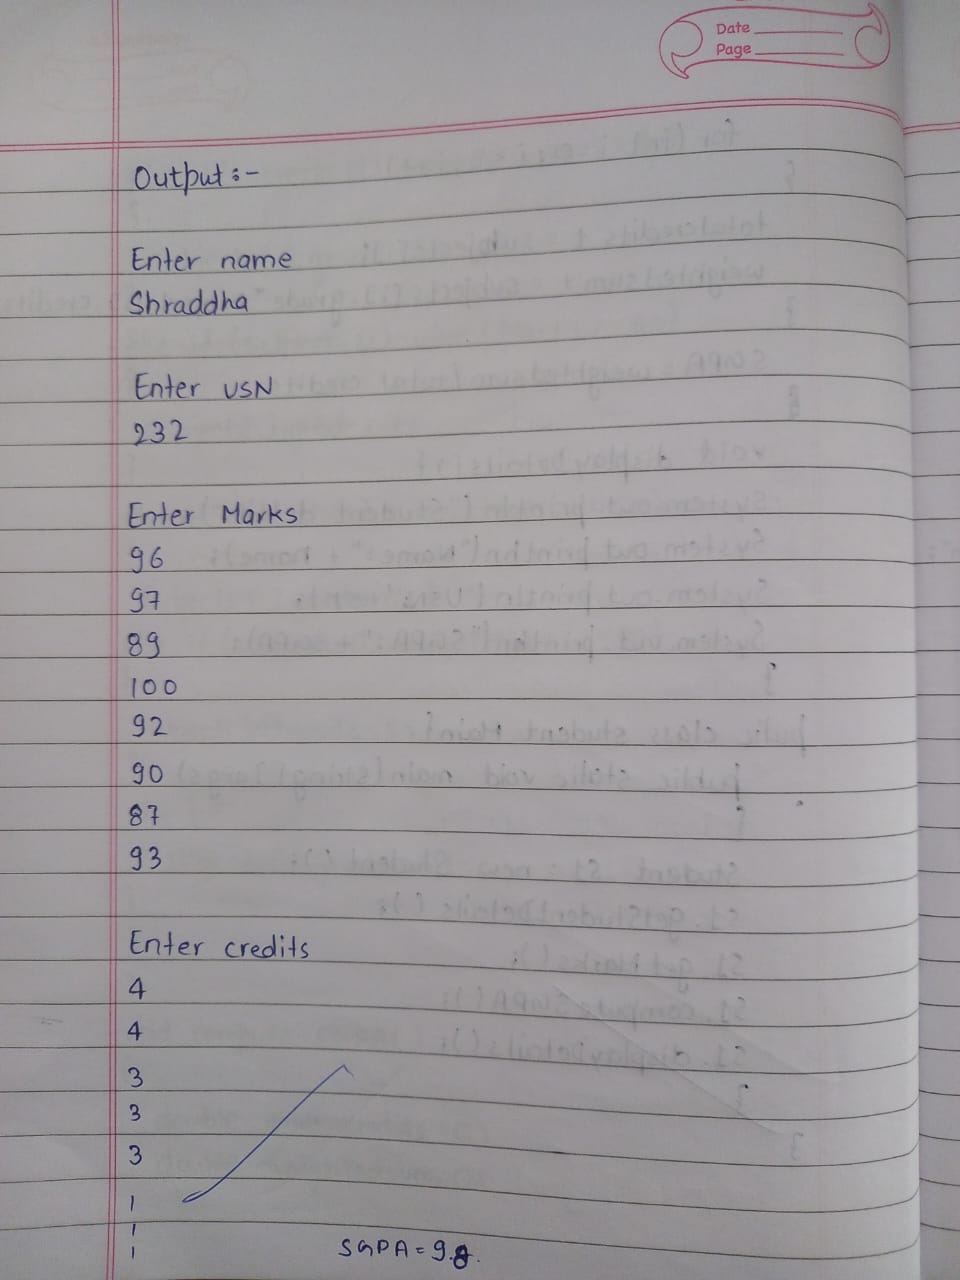 Date
Page
Output :-
Enter name
Shraddha
Enter USN
232
Enter Marks
96
97
89
100
92
90
87
93
Enter credits
4
4
3
3
3
1
1
1
SGPA = 9.8.